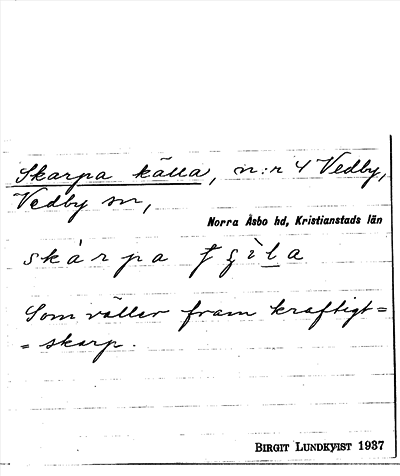 Skarpa källa, n:r 4 Vedby,
Vedby sn,
Norra Åsbo hd, Kristianstads län
skàrpa
Som väller fram kraftigt=
= skarp.
BIRGIT LUNDKVIST 1937